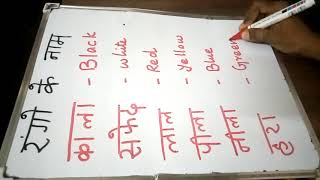 रंगों के नाम
काला - Black
सफेद - White
लाल - Red
पीला - Yellow
नीला - Blue
हरा - Green